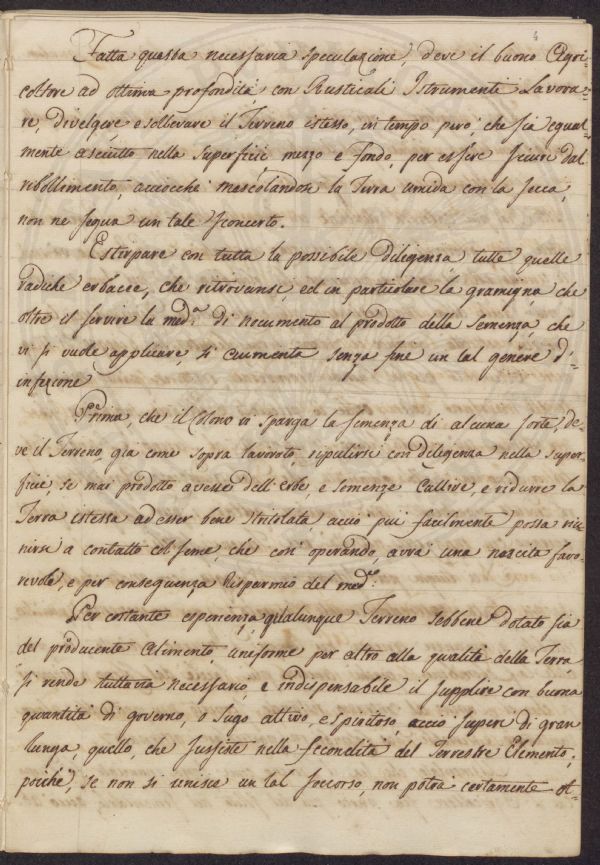 4
Fatta questa necessaria speculazione, deve il buono Agri-
coltore ad ottima profondità con Rusticali Istrumenti Lavora-
re, divelgere e sollevare il Terreno istesso, in tempo però, che sia equal-
mente asciutto nella superficie mezzo e fondo, per essere sicuri dal
ribollimento, acciocchè mescolandosi la Terra umida con la secca,
non ne segua un tale sconcerto.
Estirpare con tutta la possibile diligenza tutte quelle
radiche erbacee, che ritrovansi, ed in particolare la gramigna che
oltre il servire la med.ª di nocumento al prodotto della Semenza, che
vi si vuole applicare, si aumenta senza fine un tal genere d'
infezione
Prima, che il Colono vi sparga la semenza di alcuna sorte, de-
ve il Terreno, già come sopra lavorato, ripulirsi con diligenza nella super-
ficie, se mai prodotto avesse dell'erbe e semenze cattive, e ridurre la
Terra istessa ad esser bene stritolata, acciò più facilmente possa riu-
nirsi a contatto col seme, che così operando, avrà una nascita favo-
revole, e per conseguenza Risparmio del med.º
Per costante esperienza qualunque Terreno sebbene dotato sia
del producente alimento, uniforme per altro alla qualità della Terra,
si rende tuttavia necessario, e indispensabile il supplire con buona
quantità di governo, o Sugo attivo, e spiritoso, acciò superi di gran
lunga, quello, che sussiste nella fecondità del Terrestre Elemento;
poichè, se non si unisce un tal soccorso, non potrà certamente ot-